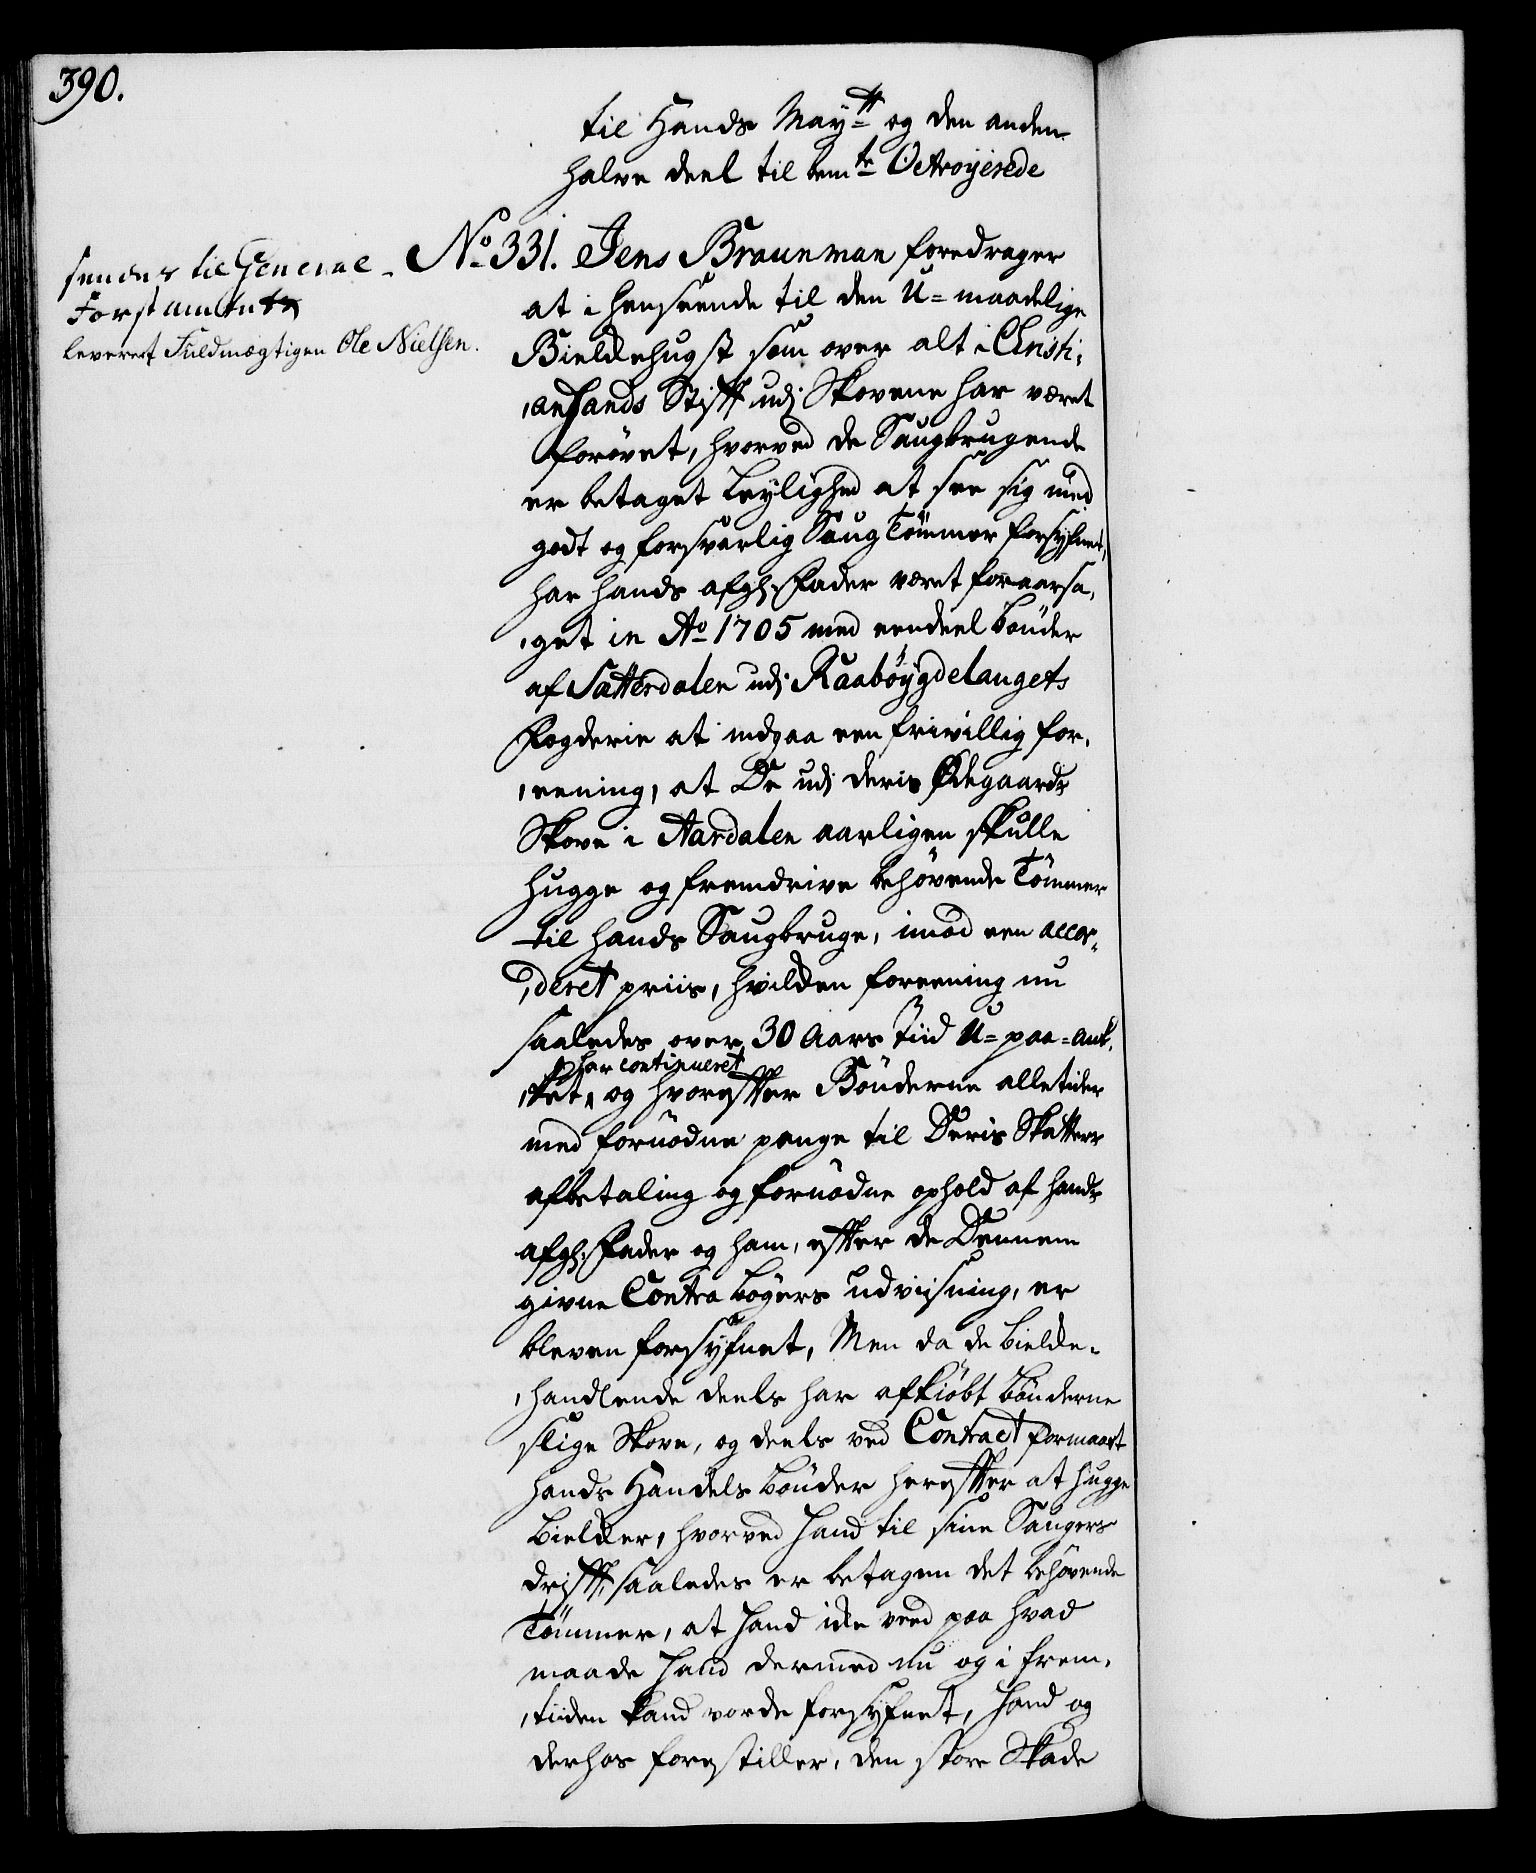 390.
til Hands May<sup>tt</sup> og den anden
halve deel til bem<sup>te</sup> Octroyerede
sendes til General-
Forst amtet
leveret Fuldmægtigen Ole Nielsen.
N<sup>o</sup> 331. Jens Braunman foredrager
at i henseende til den U-maadelige
Bieldehugst som over alt i Christi,
,ansands Stifft udj Skovene har været
forövet, hvorved de Saugbrugende
er betaget leylighed at see sig med
godt og forsvarlig Saug Tömmer forsyfnet,
har hands afgl: Fader været foraarsa,
,get in A<sup>o</sup> 1705 med eendeel bönder
af Sætterdalen udj Raaböygdelaugets
Fogderie at indgaa een frivillig for,
,eening, at De udj deris Ödegaards
Skove i Aardalen aarligen skulle
hugge og fremdrive behövende Tömmer
til hands Saugbruge, imod een accor,
,deret priis, hvilcken foreening nu
saaledes over 30 Aars Tiid U-paa-ank,
har continueret
,ket, og hvorefter Bönderne alletider
med fornödne penge til Deris Skatters
afbetaling og fornödne ophold af hands
afgl: Fader og ham, effter de Dennem
givne Contra bögers udviisning, er
bleven forsyfnet, Men da de bielde,
,handlende deels har afkiöbt bönderne
slige Skove, og deels ved Contract formaaet
hands Handels bönder hereffter at hugge
bielcker, hvorved hand til sine Saugers
drifft, saaledes er betagen det behövende
Tömmer, at hand icke veed paa hvad
maade hand dermed nu og i frem,
,tiiden kand vorde forsyfnet, hand og
derhos forestiller, den store Skade